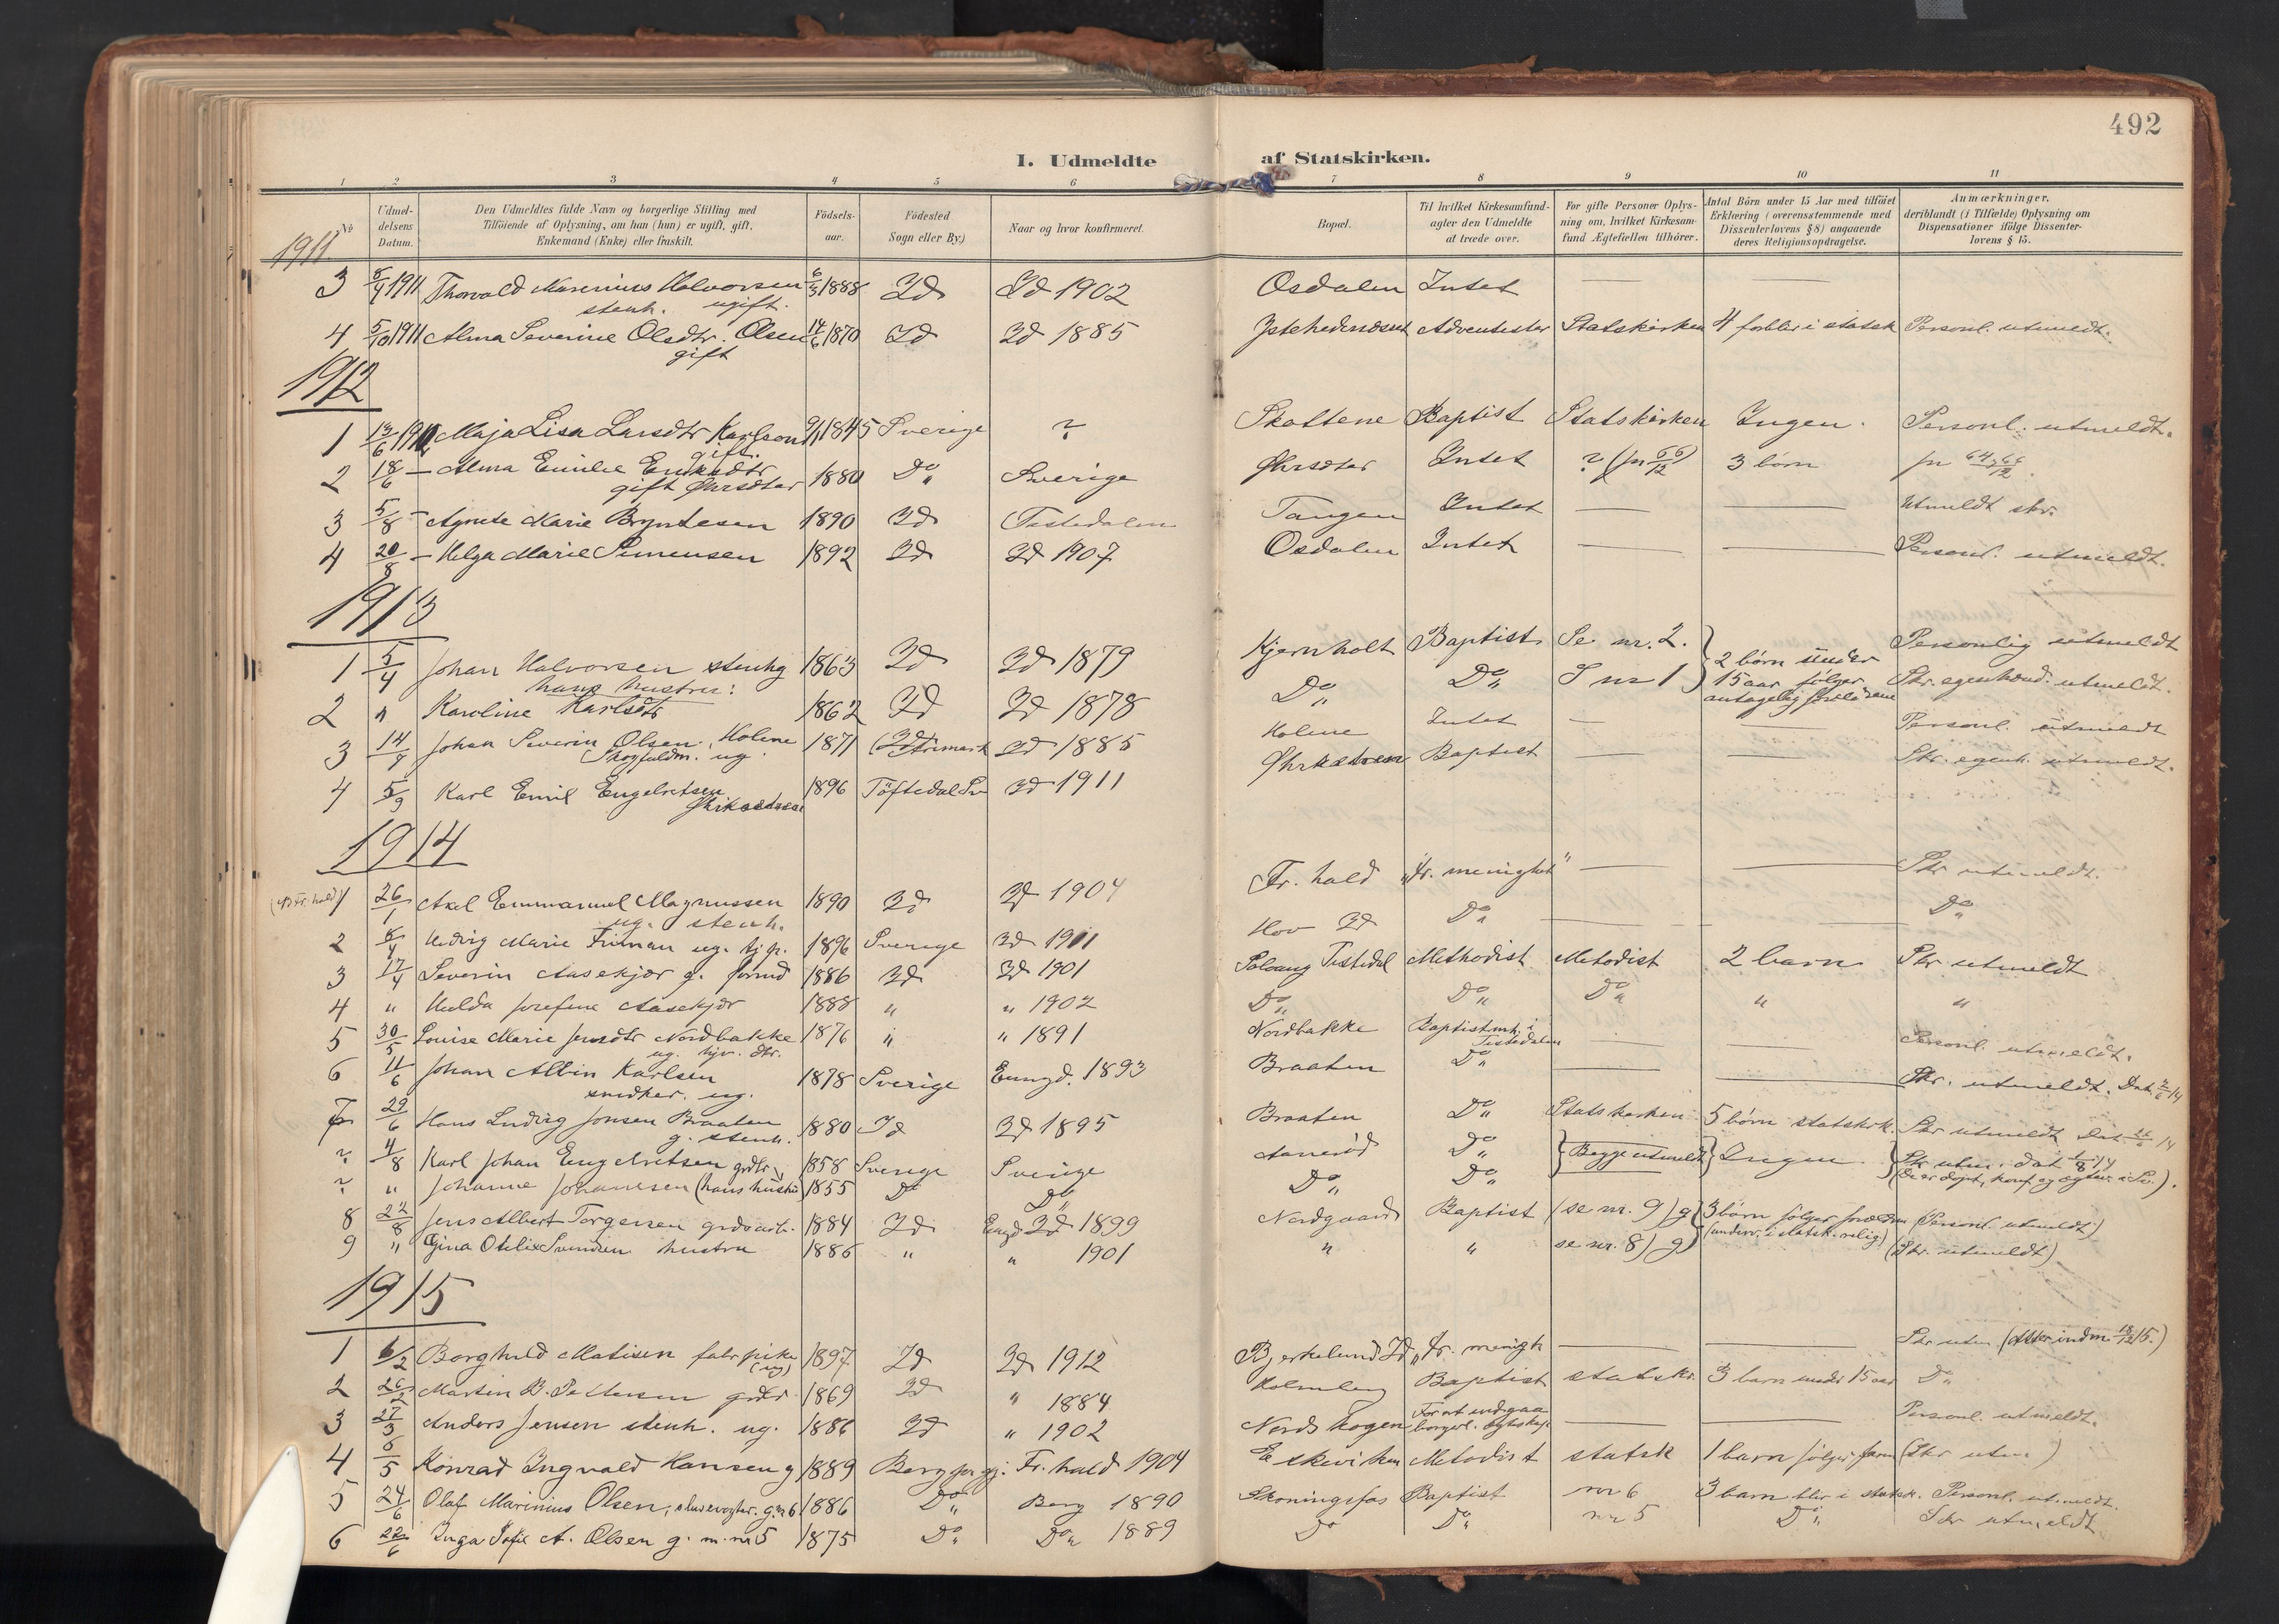 492
1. Udmeldte af Statskirken.
1 2 3 4 5 6 7 8 9 10 11
No
Udmeldelsens Datum.
Den Udmeldtes fulde Navn og borgerlige Stilling med Tilföiende af Oplysning, om han (hun) er ugift, gift, Enkemand (Enke) eller fraskilt.
Födselsaar.
Födested Sogn eller By)
Naar og hvor konfirmeret.
Bopæl.
Til hvilket Kirkesamfundagter den Udmeldte at træde over.
For gifte Personer Oplysning om, hvilket Kirkesamfund Ægtefællen tilhörer.
Antal Börn under 15 Aar med tilföiet Erklæring (overensstemmende med Dissenterlovens § 8) angaaende deres Religionsopdragelse.
Anmærkninger, deriblandt (i Tilfælde) Oplysning om Dispensationer ifölge Dissenterlovens § 15.
1911
3 5/4 1911 Thorvald Marenius Halvorsen 6/3 1888 Id Id 1902 Osdalen Intet — —
stenh. ugift.
4 5/10 1911 Alma Severine Olsdtr. Olsen 14/6 1870 Id Id 1885 Adventister Statskirken 4 forbli i statsk Personl. utmeldt.
gift
1912
1 13/6 1912 Maja Lisa Larsdtr Karlson 9/11 1845 Sverige ? Skottene Baptist Statskirken Ingen. Personl. utmeldt.
gift.
2 18/6 — Alma Emilie 1880 Do Sverige Intet ? 3 börn
gift
3 5/8 — Agnete Marie Bryntesen 1890 Id Tistedalen Tangen Intet — — Utmeldt skr.
4 20/8 — Helga Marie Simensen 1892 Id Id 1907 Osdalen Intet — — Personl. utmeldt.
1913
1 5/4 Johan Halvorsen stenhg 1863 Id Id 1879 Kjernholt Baptist Se nr. 2. Personlig utmeldt
hans hustru:
2 " Karoline Karlsdtr 1862 Id Id 1878 Do Do S nr 1 2 börn under 15 aar følger antagelig forældrene Skr. egenhænd. utmeldt.
3 14/7 Johan Severin Olsen, Holene 1871 Id 1885 Holene Intet — — Personl. utmeldt
ug.
4 5/9 Karl Emil Engelretsen 1896 Töftedal Sv Id 1911 Baptist — — Skr. egenh. utmeldt.
1914
1 26/1 Axel Emmanuel Magnussen 1890 Id Id 1904 Fr. hald "Fr. menighet" — — Skr utmeldt.
ug. stenh.
2 Hedvig Marie Friman ug. tj.p. 1896 Sverige Id 1911 Hov Id Do — — Do
3 17/4 Severin Aasekjær g. 1886 Id Id 1901 Solvang Tistedal Methodist Metodist 2 barn Skr utmeldt
4 " Hulda Josefine Aasekjær 1888 " " 1902 Do Do Do " "
5 30/5 Louise Marie Jensdtr Nordbakke 1876 " " 1891 Nordbakke Baptistmh. i Tistedalen — — Personl. utmeldt.
ug. hjv. dtr.
6 11/6 Johan Albin Karlsen 1878 Sverige 1893 Braaten Do — — Skr. utmeldt.
snidker. ug.
7 29/6 Hans Ludvig Jonsen Braaten 1880 Id Id 1895 Braaten Do Statskirken 5 börn statskrk. Skr utmeldt
g. stenh.
? 4/8 Karl Johan Engelretsen 1858 Sverige Sverige Do Begge utmeldt Ingen.
? " Johanne Johannesen (hans hustru) 1855 Do Do Do Do
8 22/8 Jens Albert Torgersen grdsarb. 1884 Id Id 1899 Nordgaard Baptist (se nr. 9) g 3 börn følger forældrene (Personl. utmeldt)
9 " Gina Otelie Svendsen hustru 1886 " " 1901 " " se nr. 8) g (underv. i statsk. relig) (Skr. utmeldt)
1915
1 6/2 Borghild Matisen fabr pike 1897 Id Id 1912 Bjerkelund Id "Fr. menigh — — Skr utm
(ug)
2 26/2 Martin B. Pettersen 1869 Id " 1884 Holmberg Baptist statskr. 3 barn under 15 aar Do
3 27/3 Anders Jensen stenh. ug. 1886 Id " 1902 Nordskogen For at indgaa borgerl. egteskap — — Personl. utmeldt.
4 6/5 Konrad Ingvald Hansen g 1889 Berg Fr. hald 1904 Eskeviken Metodist statsk 1 barn følger faren (Skr utm)
5 24/6 Olaf Marinius Olsen, slusevogter. g. m 6 1886 Do Berg 1890 Skoningsfos Baptist nr 6 3 barn blir i statsk. Personl. utmeldt.
6 22/6 Inga Sofie A. Olsen g. m. nr 5 1875 Do Do 1889 Do Do nr 5 Do Skr utmeldt